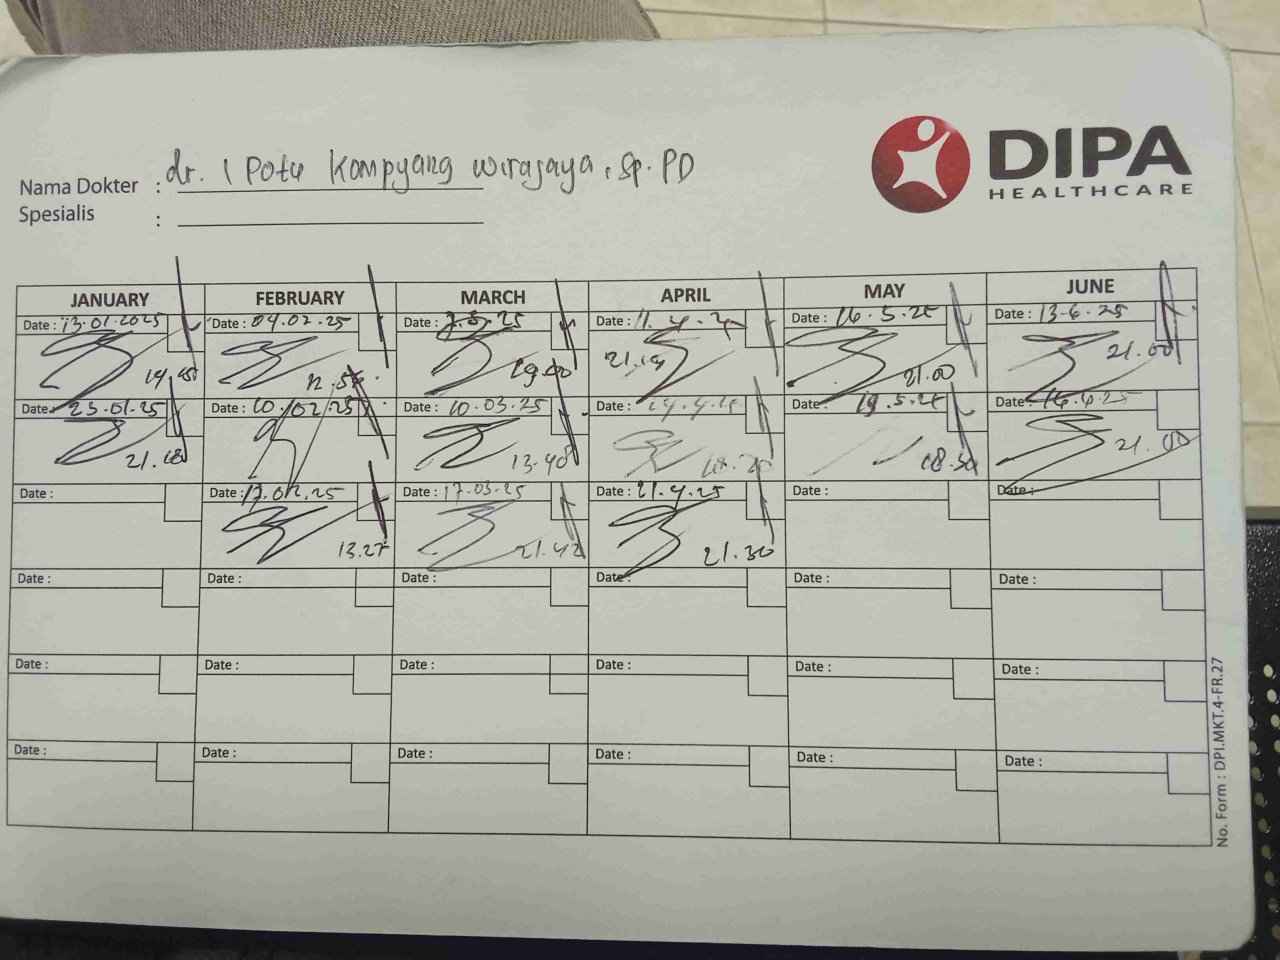 DIPA
HEALTHCARE
Nama Dokter : dr. I Potu Kompyang Wirajaya, Sp.PD
Spesialis :
JANUARY FEBRUARY MARCH APRIL MAY JUNE
Date : 13.01.2025 Date : 04.02.25 Date : 25 Date : 11.4. Date : 16.5.25 Date : 13-6.25
12.55 21.00 21.00
Date : 23.01.25 Date : 10/02.25 Date : 10.03.25 Date : Date : 19.5.25 Date :
21.10 13.40 18.30 21.00
Date : Date : 17.02.25 Date : 17.03.25 Date : 21.4.25 Date : Date :
13.27 21.42 21.30
Date : Date : Date : Date : Date : Date :
Date : Date : Date : Date : Date : Date :
Date : Date : Date : Date : Date : Date :
No. Form : DPI.MKT.4-FR.27